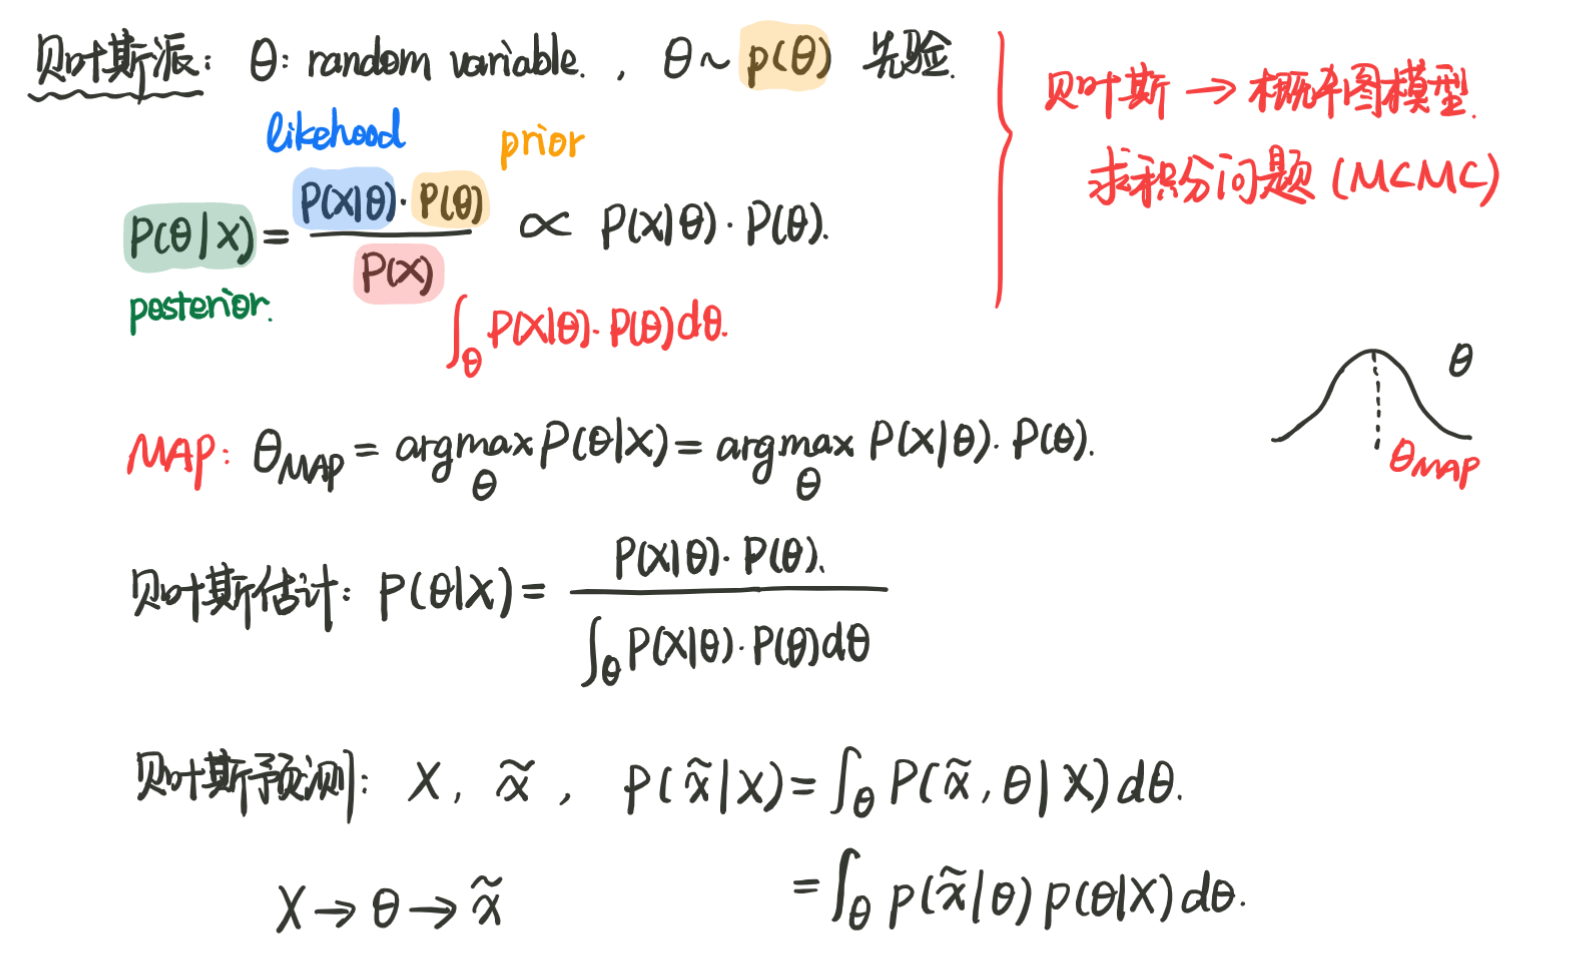 贝叶斯派: θ: random variable. , θ ~ p(θ) 先验.
likehood prior
P(θ|X) = P(X|θ)·P(θ) / P(X) ∝ P(X|θ)·P(θ).
posterior.
∫_θ P(X|θ)·P(θ)dθ.
贝叶斯 → 概率图模型.
求积分问题 (MCMC)
MAP: θ_MAP = argmax_θ P(θ|X) = argmax_θ P(X|θ)·P(θ).
θ
θ_MAP
贝叶斯估计: P(θ|X) = P(X|θ)·P(θ). / ∫_θ P(X|θ)·P(θ)dθ
贝叶斯预测: X, x̃, P(x̃|X) = ∫_θ P(x̃,θ|X)dθ.
X → θ → x̃ = ∫_θ p(x̃|θ) p(θ|X)dθ.